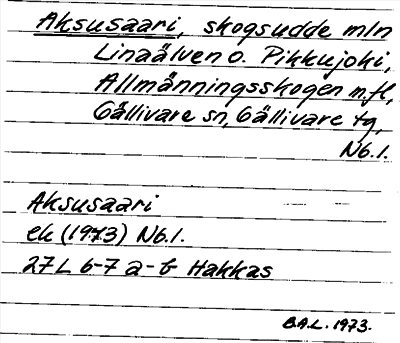 Aksusaari, skogsudde mln
Linaälven o. Pikkujoki,
Allmänningsskogen m.fl,
Gällivare sn, Gällivare tg,
Nb.l.
Aksusaari
ek (1973) Nb.l.
27L 6-7 a-b Hakkas
B.A.L. 1973.